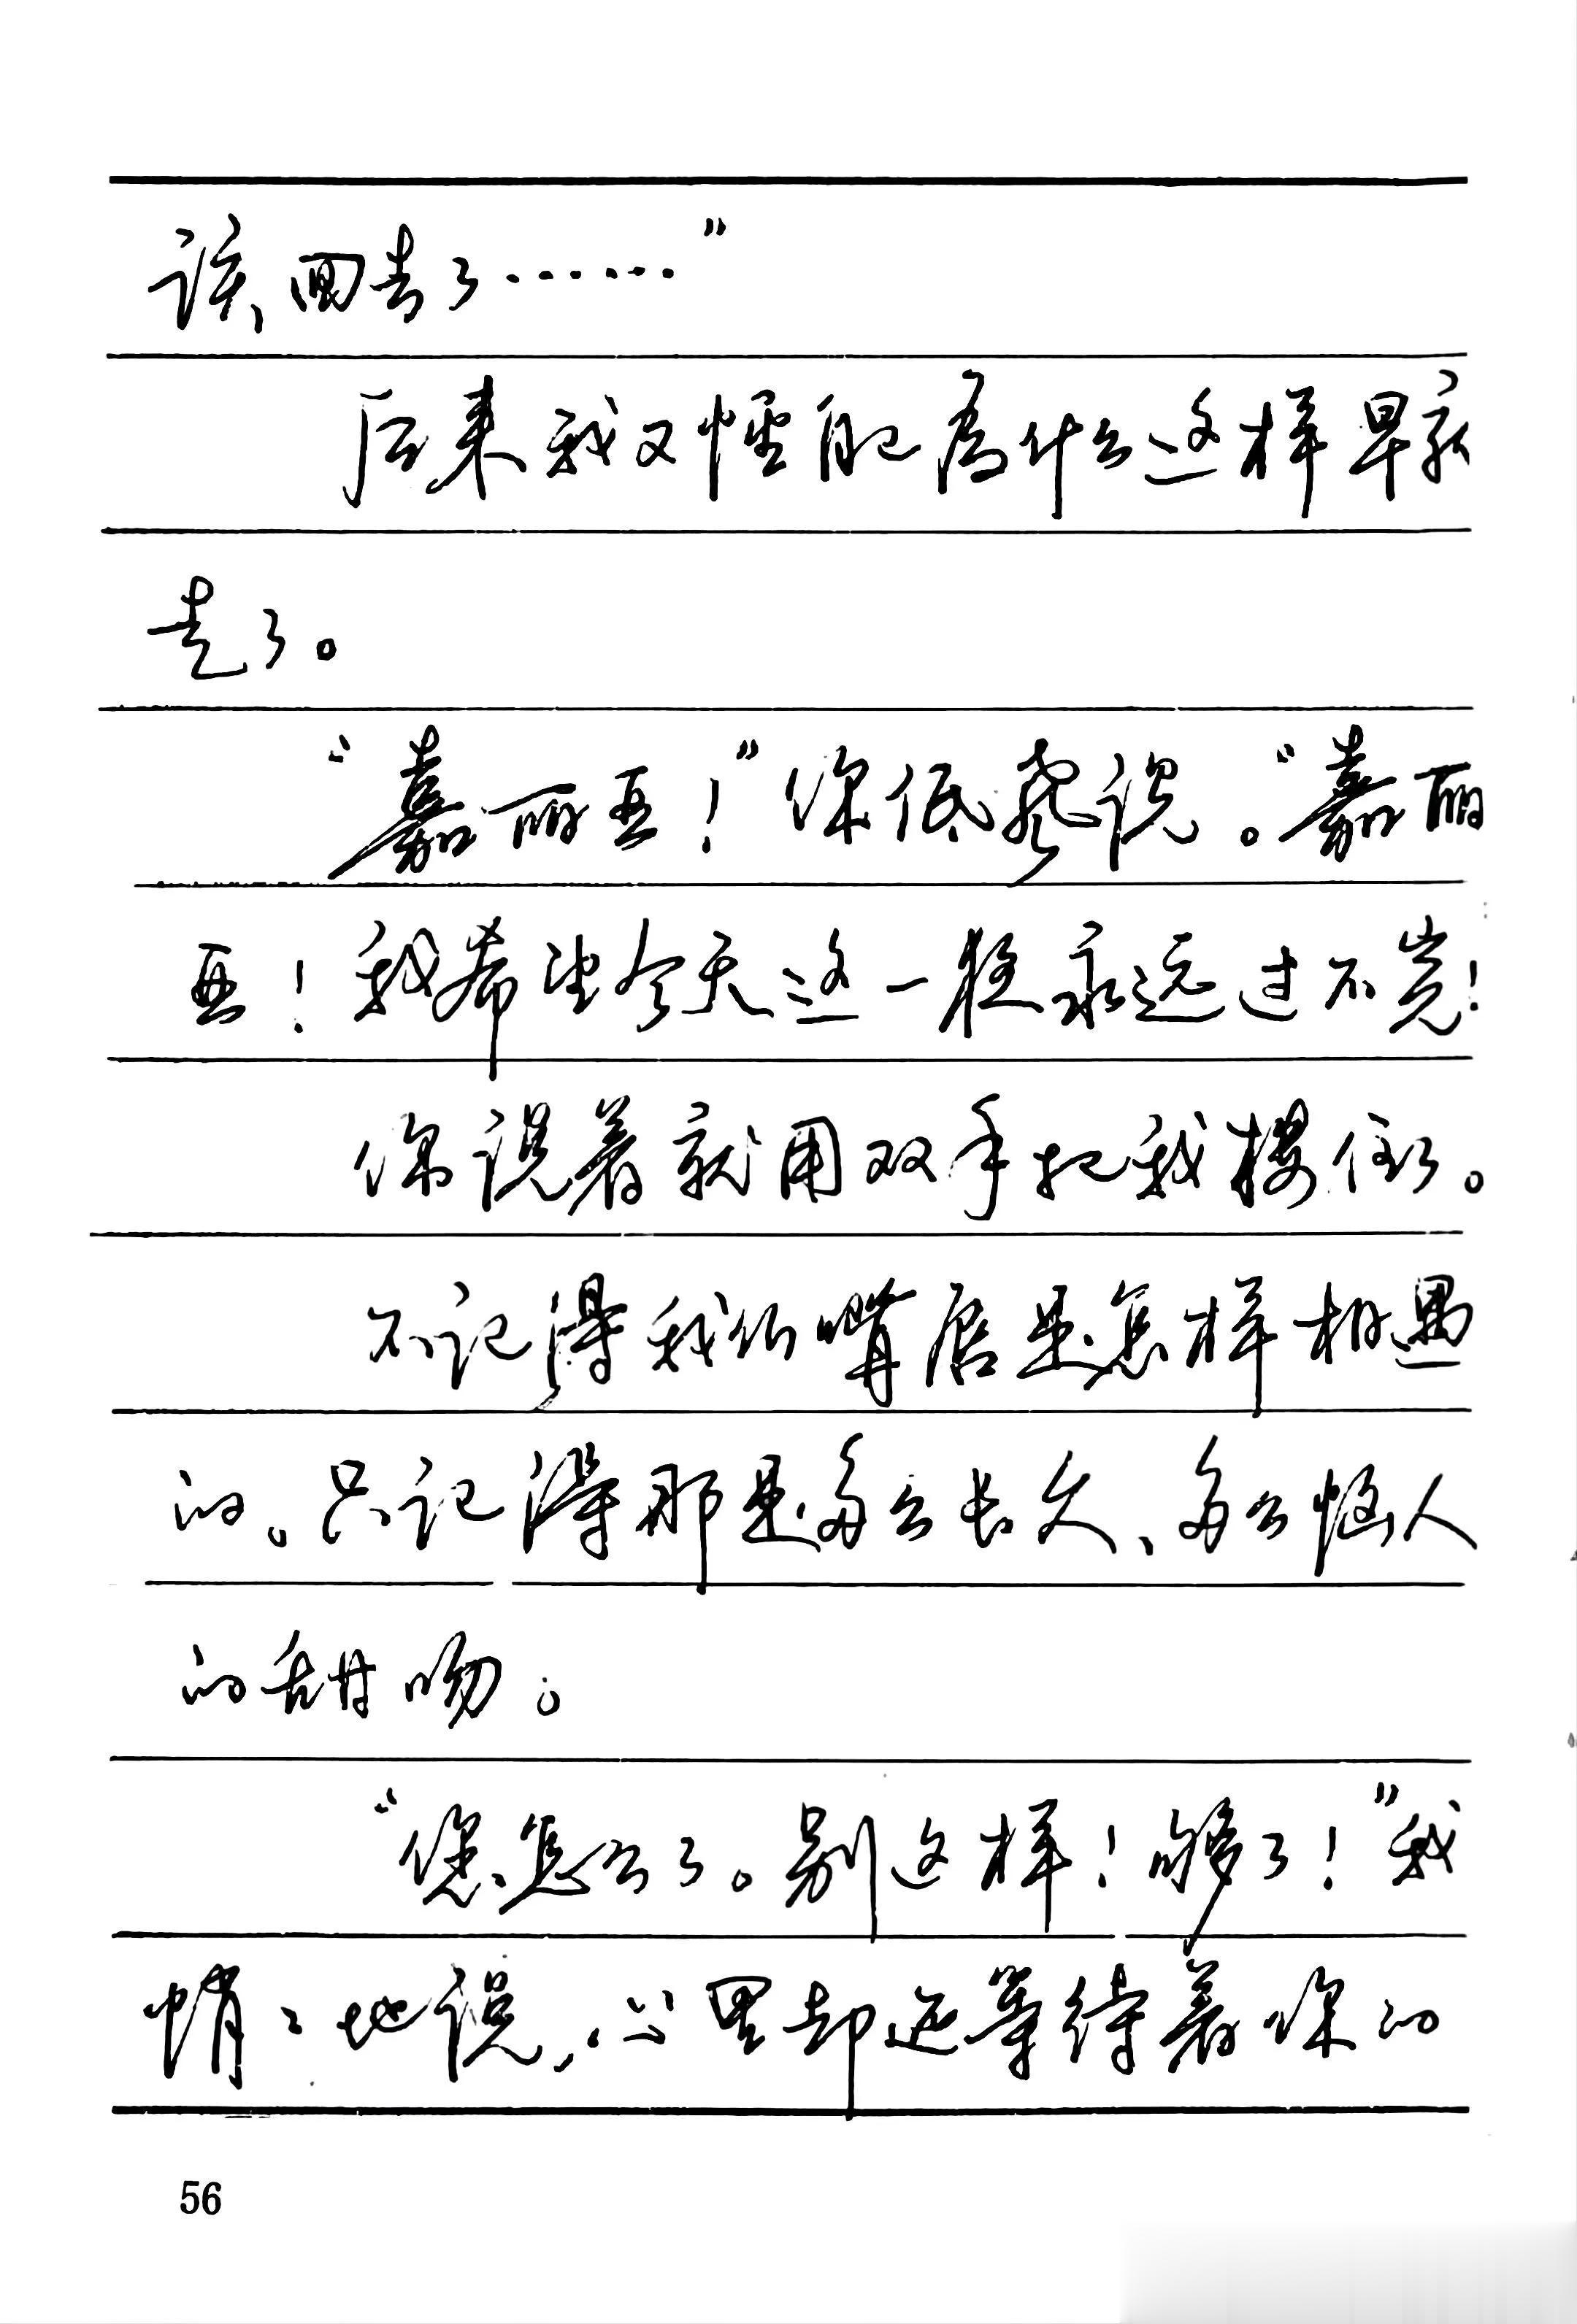 该回去了……”
后来我又怪自己为什么这样早就
走了。
“嘉丽亚！”你低声说。“嘉丽
亚！我希望今天这一夜永远过不完！
你说着就用双手把我搂住了。
不记得我们嘴唇是怎样相遇
的。只记得那是多么长久、多么恼人
的甜吻。
“您怎么了。别这样！够了！”我
悄々地说，心里却还等待着你的
56